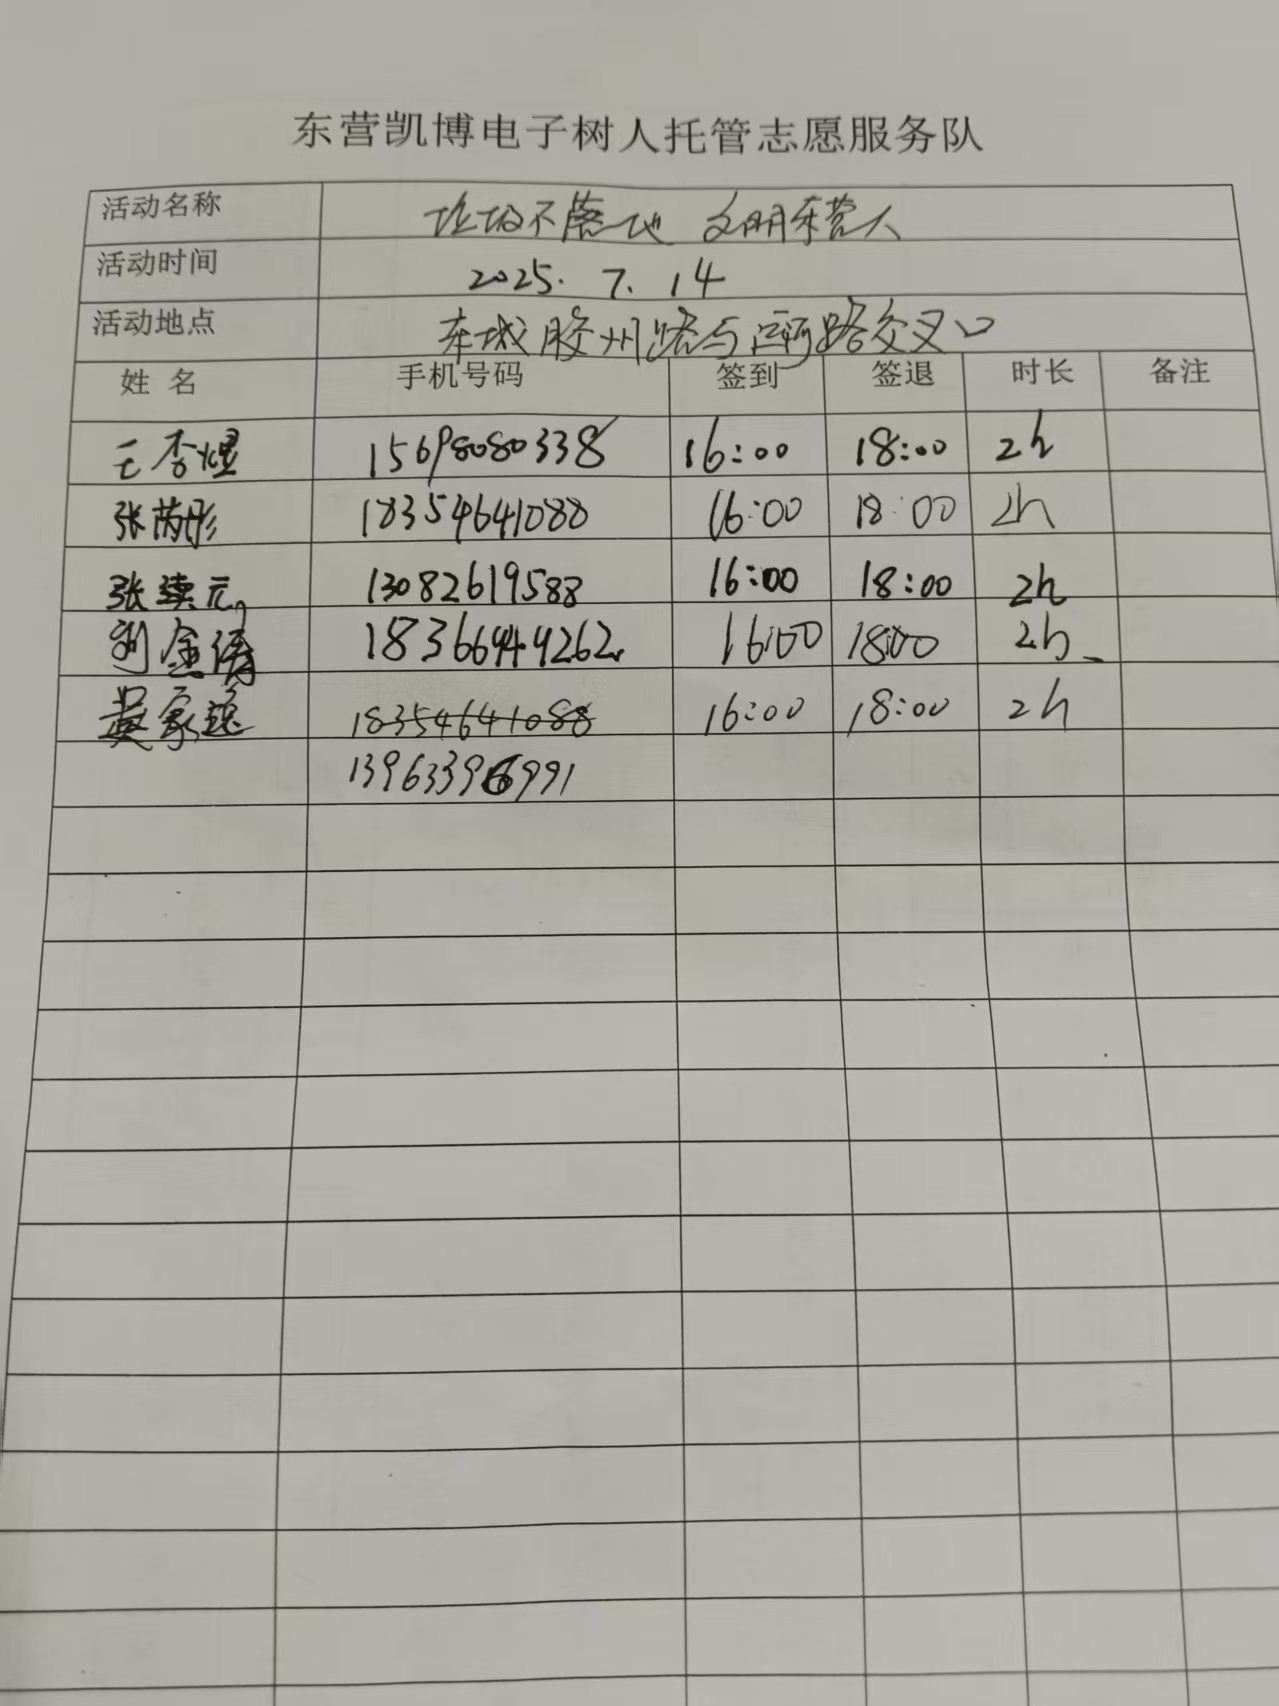 东营凯博电子树人托管志愿服务队
活动名称 垃圾不落地 文明东营人
活动时间 2025. 7. 14
活动地点 东城胶州路与运河路交叉口
姓 名 手机号码 签到 签退 时长 备注
王杏煜 15698080338 16:00 18:00 2h
张芮彤 18354641088 16:00 18:00 2h
张续元 13082619588 16:00 18:00 2h
刘金涛 183669449262 16:00 18:00 2h
黄家逸 18354641088 16:00 18:00 2h
13963396991